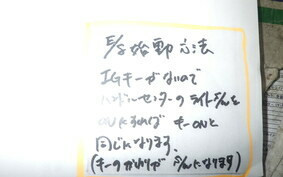 E/g始動方法
IGキーがないので
ハンドルセンターのライトSWを
ONにすれば キーONと
同じになります。
(キーのかわりがSWになります)